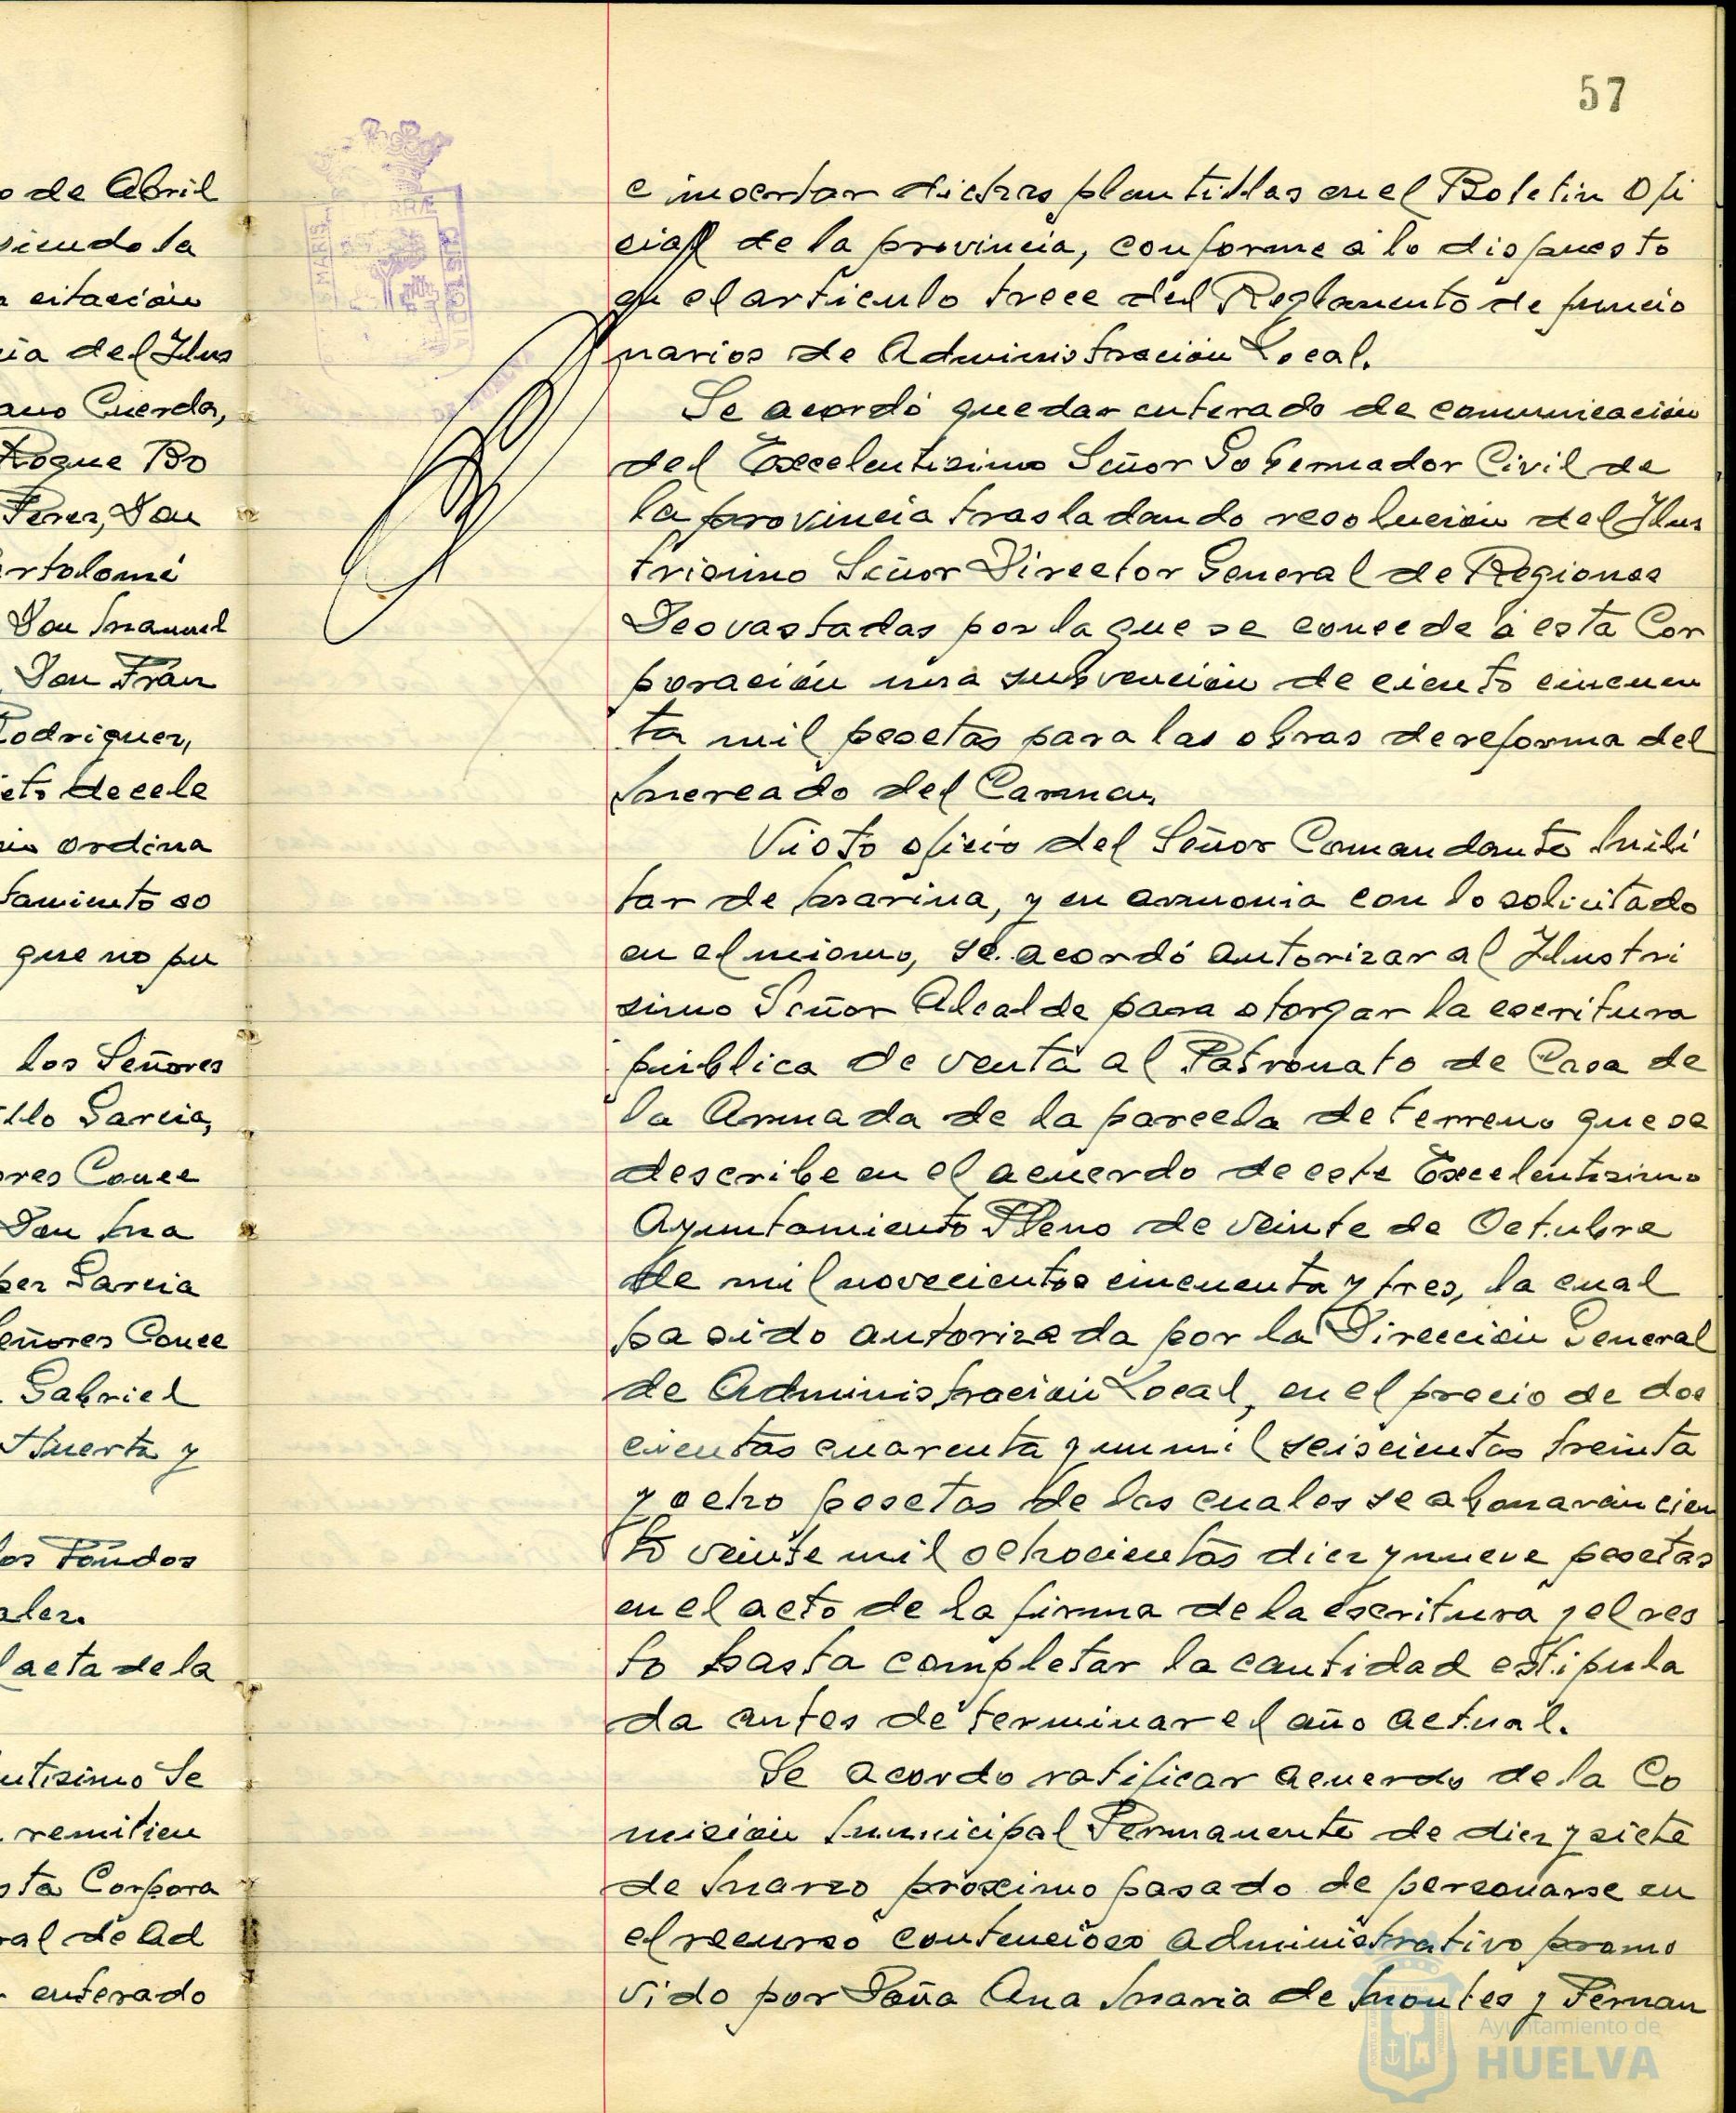 57
o de Abril
siendo la
a citación
cia del Ilus
ano Cuerda,
Roque Bo
Perez, Don
rtolomé
Don Manuel
Don Fran
Rodriguez,
eto de cele
ordina
tamiento so
que no pu
los Señores
illo Garcia,
ores Conce
Don Ma
ber Garcia
eñores Conce
Gabriel
Huerta y
los Fondos
alez.
l acta de la
utisimo Se
remitien
sta Corpora
ral de Ad
enterado
e insertar dichas plantillas en el Boletin Ofi
cial de la provincia, conforme a lo dispuesto
en el articulo trece del Reglamento de funcio
narios de Administración Local.
Se acordó quedar enterado de comunicación
del Excelentisimo Señor Gobernador Civil de
la provincia trasladando resolución del Ilus
trisimo Señor Director General de Regiones
Desvastadas por la que se concede a esta Cor
poración una subvención de ciento cincuen
ta mil pesetas para las obras de reforma del
Mercado del Carmen.
Visto oficio del Señor Comandante Mili
tar de Marina, y en armonia con lo solicitado
en el mismo, se acordó autorizar al Ilustri
simo Señor Alcalde para otorgar la escritura
pública de venta al Patronato de Casa de
la Armada de la parcela de terreno que se
describe en el acuerdo de este Excelentisimo
Ayuntamiento Pleno de veinte de Octubre
de mil novecientos cincuenta y tres, la cual
ha sido autorizada por la Dirección General
de Administración Local, en el precio de dos
cientas cuarenta y un mil seiscientas treinta
y ocho pesetas de las cuales se abonarán cien
to veinte mil ochocientas diez y nueve pesetas
en el acto de la firma de la escritura y el res
to hasta completar la cantidad estipula
da antes de terminar el año actual.
Se acordo ratificar acuerdo de la Co
misión Municipal Permanente de diez y siete
de Marzo próximo pasado de personarse en
el recurso contencioso administrativo promo
vido por Doña Ana Maria de Montes y Fernan
Ayuntamiento de
HUELVA